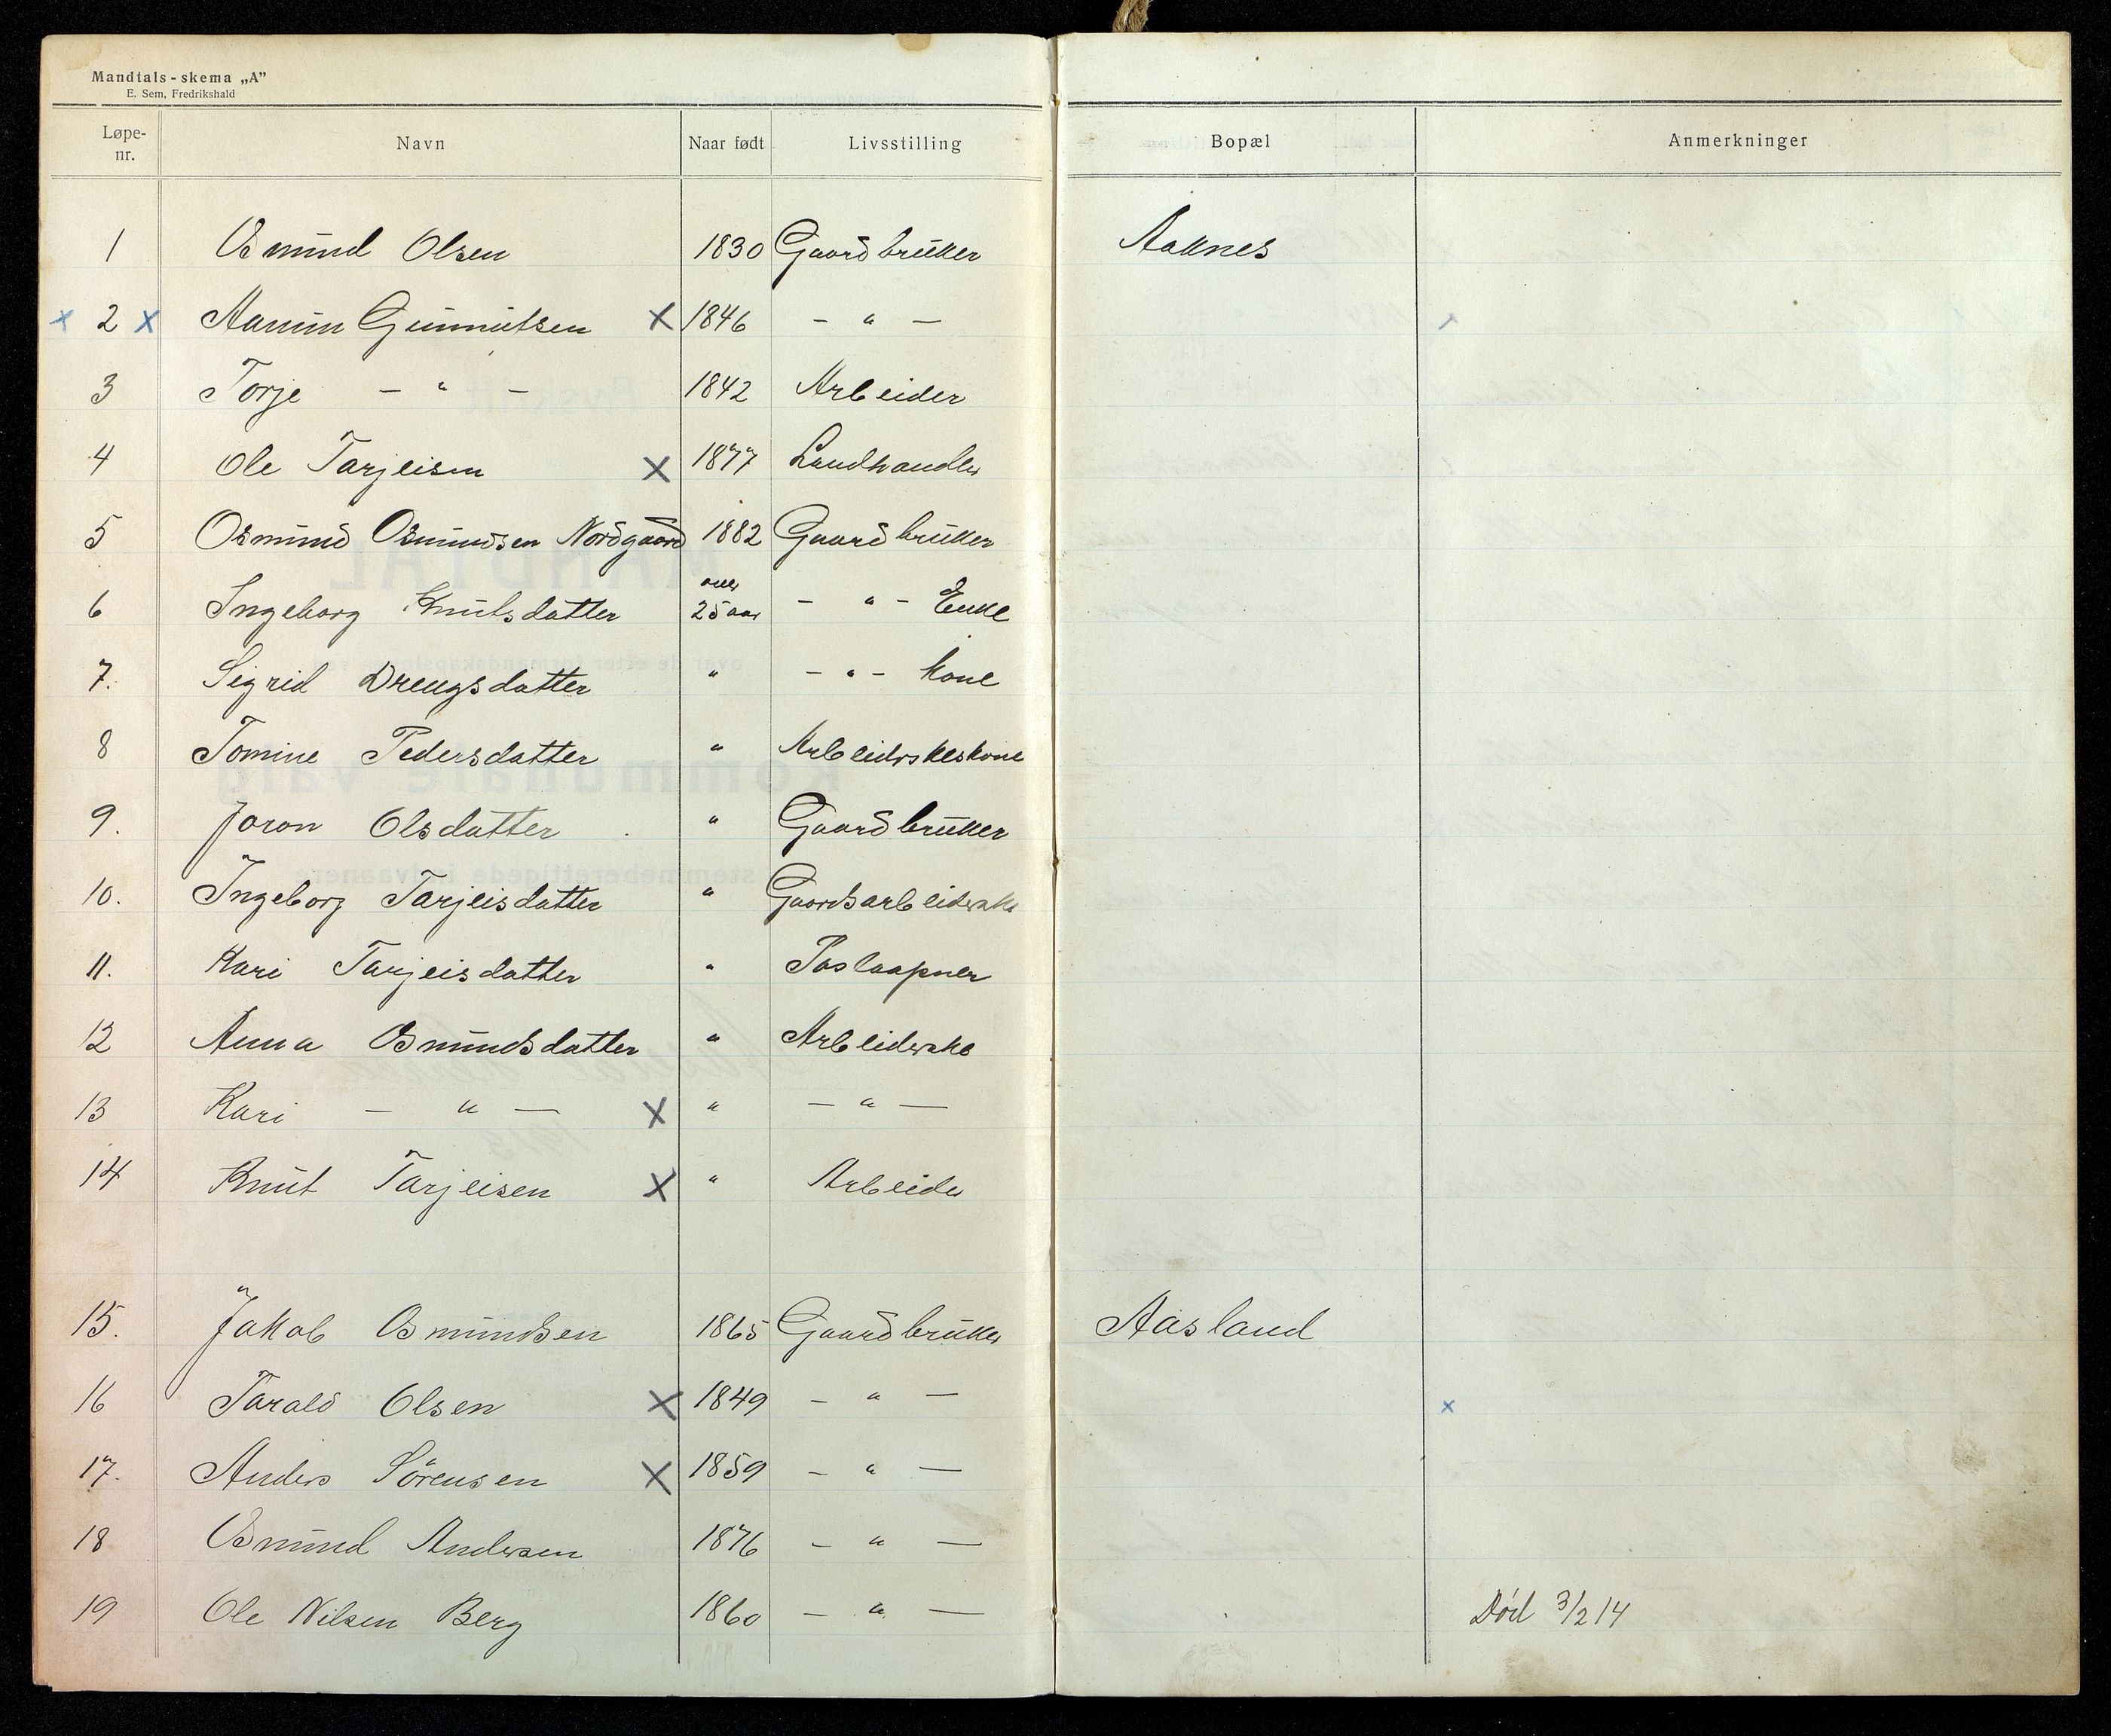 Mandtals-skema „A”
E. Sem, Fredrikshald
Løpe-nr. Navn Naar født Livsstilling Bopæl Anmerkninger
1 Osmund Olsen 1830 Gaardbruker Aaknes
x 2 x Aanun Gunnutsen X 1846 — " —
3 Torje — " — 1842 Arbeider
4 Ole Tarjeisen X 1877 Landhandler
5 Osmund Osmundsen Nordgaard 1882 Gaardbruker
6 Ingeborg Knutsdatter over 25 aar — " — Enke
7. Sigrid Drengsdatter " — " — kone
8 Tomine Pedersdatter " Arbeiderskeskone
9. Joron Olsdatter " Gaardbruker
10. Ingeborg Tarjeisdatter " Gaardsarbeiderske
11. Kari Tarjeisdatter " Poslaapner
12 Anna Osmundsdatter " Arbeiderske
13 Kari — " — X " — " —
14 Knut Tarjeisen X " Arbeider
15. Jakob Osmundsen 1865 Gaardbruker Aasland
16 Tarald Olsen X 1849 — " — x
17. Anders Sörensen X 1859 — " —
18 Osmund Andersen 1876 — " —
19 Ole Nilsen Berg 1860 — " — Död 3/2 14